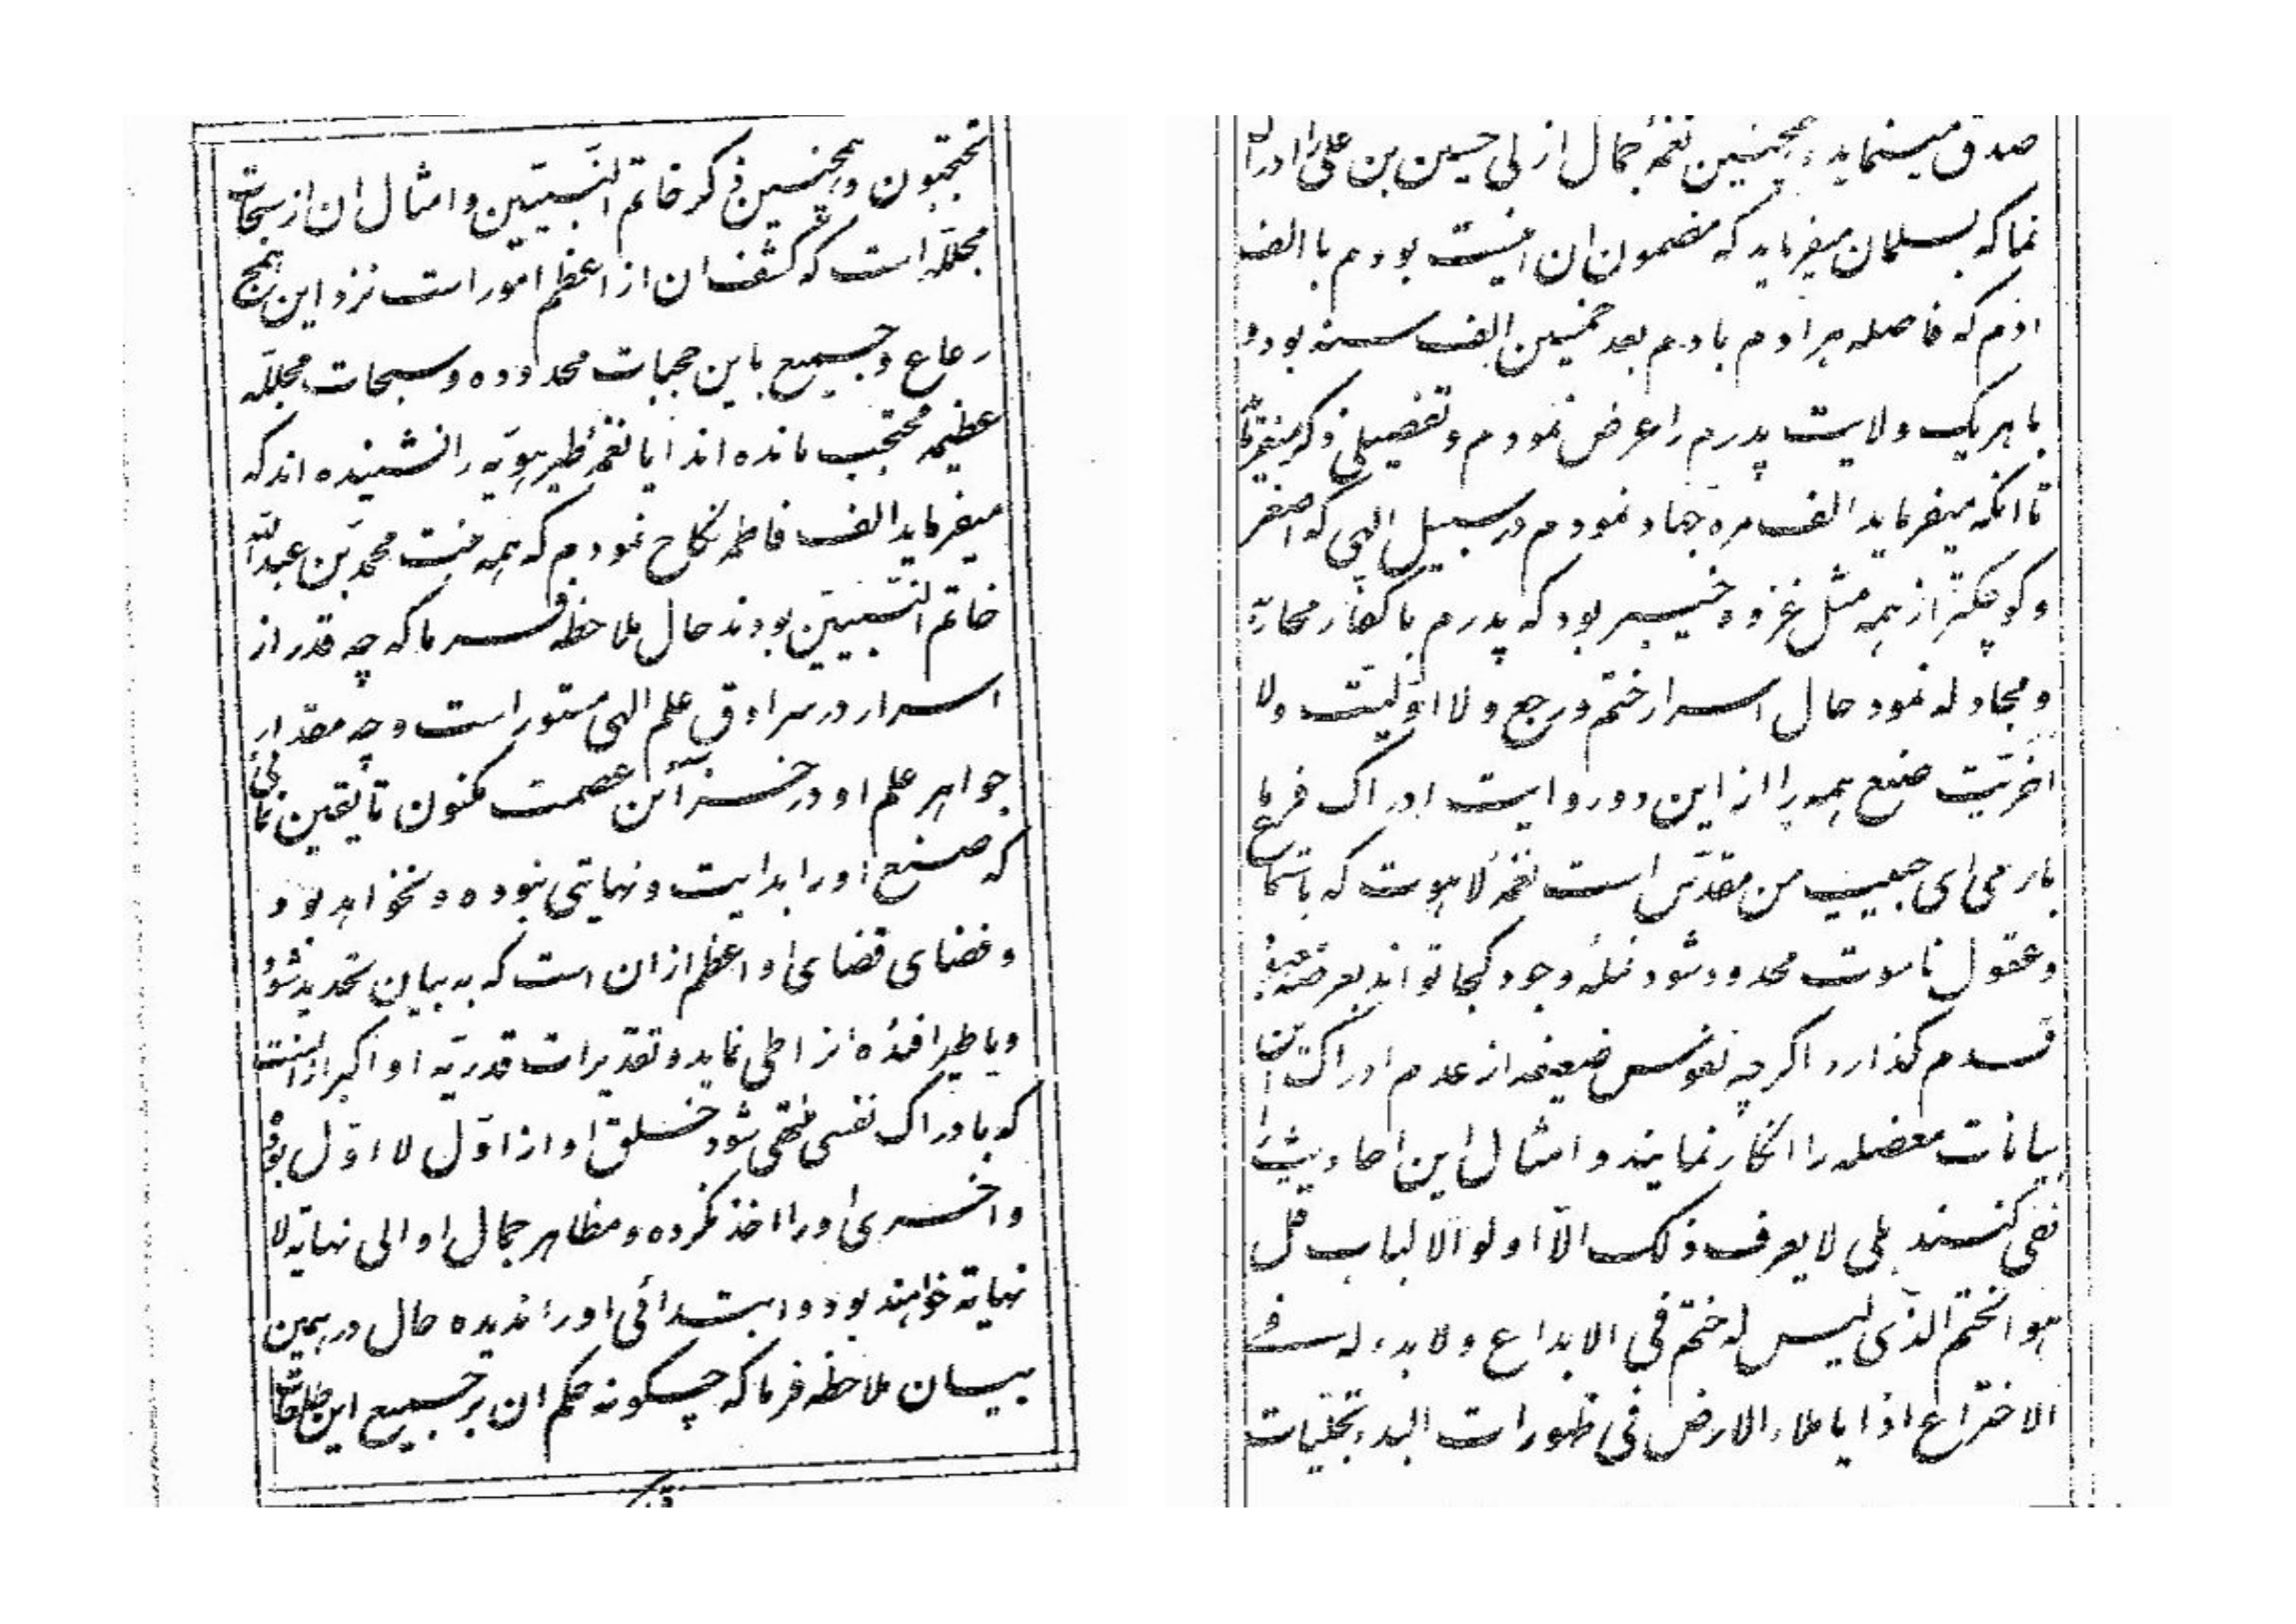 محتجبون و همچنین ذکر خاتم النّبیّین و امثال ان از سبحات
مجلّله است که کشف ان از اعظم امور است نزد این همج
رعاع و جمیع باین حجبات محدوده و سبحات مجلّله
عظیمه محتجب مانده اند ایا نغمهٔ طیر هویّه را نشنیده اند که
میفرماید الف فاطمه نکاح نمودم که همه بنت محمّد بن عبدالله
خاتم النّبیّین بودند حال ملاحظه فرما که چه قدر از
اسرار در سرادق علم الهی مستور است و چه مقدار
جواهر علم او در خزآئن عصمت مکنون تا یقین نمائی
که صنع او را بدایت و نهایتی نبوده و نخواهد بود
و فضای قضای او اعظم از ان است که به بیان تحدید شود
و یا طیر افئدهٔ انرا طی نماید و تقدیرات قدریّه او اکبر از انست
که بادراک نفسی منتهی شود خلق او از اوّل لا اوّل بوده
و اخری او را اخذ نکرده و مظاهر جمال او الی نهایة لا
نهایة خواهند بود و ابتدائی او را ندیده حال در همین
بیان ملاحظه فرما که چگونه حکم ان بر جمیع این طلعات
صدق مینماید و همچنین نغمهٔ جمال ازلی حسین بن علی را ادراک
نما که بسلمان میفرماید که مضمون ان اینست بودم با الف
ادم که فاصله هر ادم بادم بعد خمسین الف سنه بود و
با هریک ولایت پدرم را عرض نمودم و تفصیلی ذکر میفرماید
تا انکه میفرماید الف مره جهاد نمودم در سبیل الهی که اصغر
و کوچکتر از همه مثل غزوه خیبر بود که پدرم با کفّار محاربه
و مجادله نمود حال اسرار ختم و رجع و لا اوّلیّت و لا
اخریّت صنع همه را از این دو روایت ادراک فرما
باری ای حبیب من مقدّس است نغمهٔ لاهوت که باستماع
و عقول ناسوت محدود شود نملهٔ وجود کجا تواند بعرصه معبود
قدم گذارد اگرچه نفوس ضعیفه از عدم ادراک این
بیانات معضله را انکار نمایند و امثال این احادیث را
نفی کنند بلی لا یعرف ذلک الاّ اولو الالباب قل
هو الختم الّذی لیس له ختم فی الابداع و لا بدء له فی
الاختراع اذا یا ملاء الارض فی ظهورات البدء تجلّیات